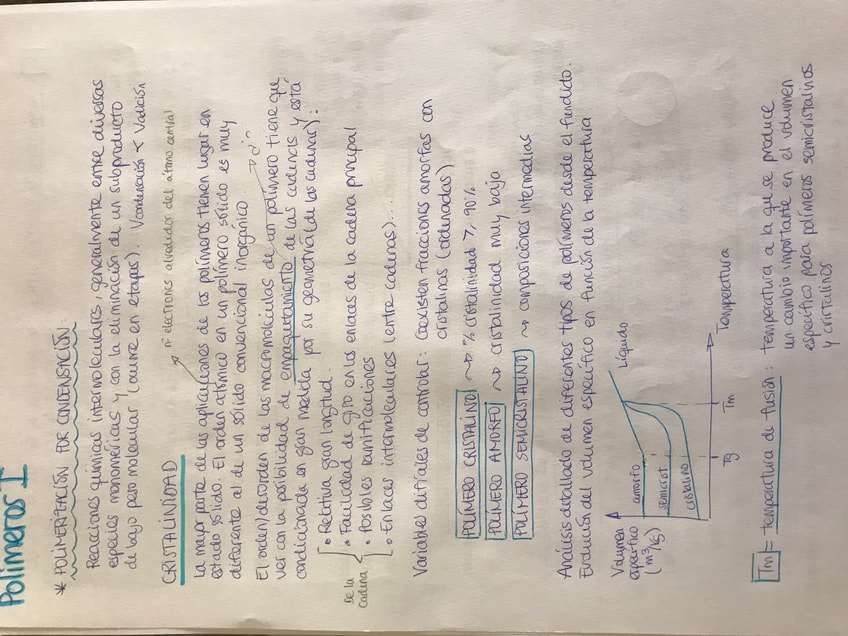 Polímeros I
* POLIMERIZACIÓN POR CONDENSACIÓN:
Reacciones químicas intermoleculares, generalmente entre diversas
especies monoméricas y con la eliminación de un subproducto
de bajo peso molecular (ocurre en etapas). Vcondensación < Vadición
nº electrones alrededor del átomo central
CRISTALINIDAD
La mayor parte de las aplicaciones de los polímeros tienen lugar en
estado sólido. El orden atómico en un polímero sólido es muy
diferente al de un sólido convencional inorgánico
El orden/desorden de las macromoléculas de un polímero tiene que
ver con la posibilidad de empaquetamiento de las cadenas y está
condicionada en gran medida por su geometría (de las cadenas):
De la
cadena
• Relativa gran longitud.
• Facilidad de giro en los enlaces de la cadena principal
• Posibles ramificaciones
• Enlaces intermoleculares (entre cadenas)...
Variables difíciles de controlar: Coexisten fracciones amorfas con
cristalinas (ordenadas)
POLÍMERO CRISTALINO ~> % cristalinidad ≥ 90%
POLÍMERO AMORFO ~> cristalinidad muy baja
POLÍMERO SEMICRISTALINO ~> composiciones intermedias
Análisis detallado de diferentes tipos de polímeros desde el fundido.
Evolución del volumen específico en función de la temperatura
Volumen
específico
(m³/kg)
amorfo
semicrist
cristalino
Líquido
Tg
Tm
Temperatura
Tm = Temperatura de fusión: temperatura a la que se produce
un cambio importante en el volumen
específico para polímeros semicristalinos
y cristalinos